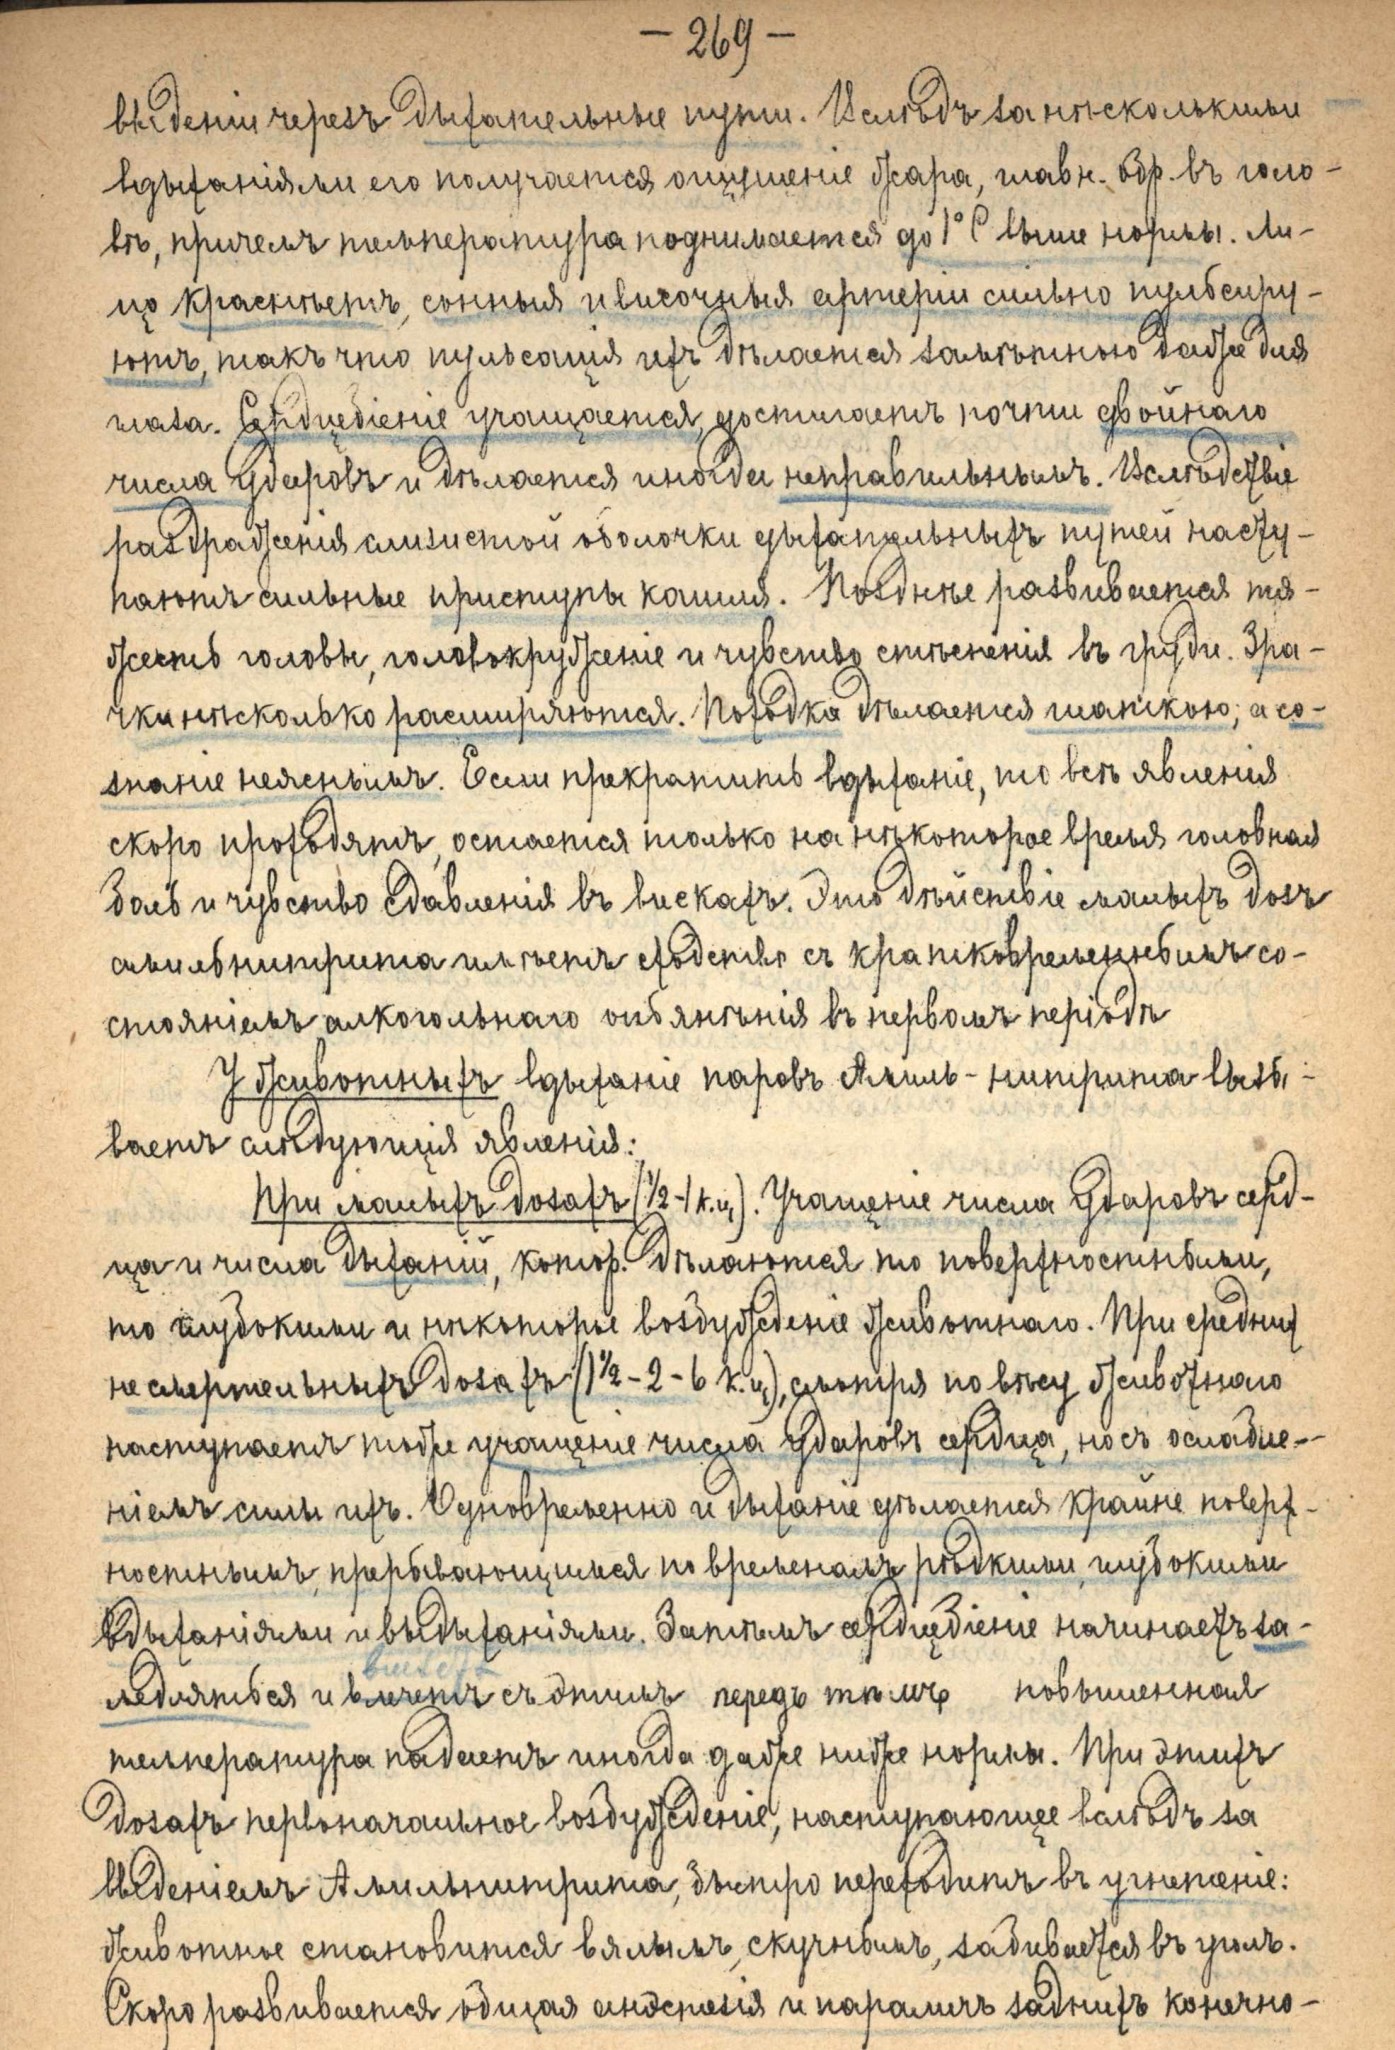 — 269 —
введеніи черезъ дыхательные пути. Вслѣдъ за нѣсколькими
вдыханіями его получается ощущеніе жара, главн. обр. въ голо-
вѣ, причемъ температура поднимается до 1° С выше нормы. Ли-
цо краснѣетъ, сонныя и височныя артеріи сильно пульсиру-
ютъ, такъ что пульсація ихъ дѣлается замѣтною даже для
глаза. Сердцебіеніе учащается, достигаетъ почти двойнаго
числа ударовъ и дѣлается иногда неправильнымъ. Вслѣдствіе
раздраженія слизистой оболочки дыхательныхъ путей насту-
паютъ сильные приступы кашля. Позднѣе развивается тя-
жесть головы, головокруженіе и чувство стѣсненія въ груди. Зра-
чки нѣсколько расширяются. Походка дѣлается шаткою, а со-
знаніе неяснымъ. Если прекратить вдыханіе, то всѣ явленія
скоро проходятъ, остается только на нѣкоторое время головная
боль и чувство сдавленія въ вискахъ. Это дѣйствіе малыхъ дозъ
амильнитрита имѣетъ сходство съ кратковременнымъ со-
стояніемъ алкогольнаго опьянѣнія въ первомъ періодѣ
У животныхъ вдыханіе паровъ Амиль-нитрита вызы-
ваетъ слѣдующія явленія:
При малыхъ дозахъ (1/2-1 к.ц). Учащеніе числа ударовъ серд-
ца и числа дыханій, котор. дѣлаются то поверхностными,
то глубокими и нѣкоторое возбужденіе животнаго. При среднихъ
не смертельныхъ дозахъ (1 1/2 - 2 - 6 к.ц), смотря по вѣсу животнаго
наступаетъ тоже учащеніе числа ударовъ сердца, но съ ослабле-
ніемъ силы ихъ. Одновременно и дыханіе дѣлается крайне поверх-
ностнымъ, прерывающимся по временамъ рѣдкими, глубокими
вдыханіями и выдыханіями. Затѣмъ сердцебіеніе начинаетъ за-
медляться и вмѣстѣ съ этимъ передъ тѣмъ повышенная
температура падаетъ иногда даже ниже нормы. При этихъ
дозахъ первоначальное возбужденіе, наступающее вслѣдъ за
введеніемъ Амильнитрита, быстро переходитъ въ угнетеніе:
животное становится вялымъ, скучнымъ, забивается въ уголъ.
Скоро развивается общая анэстезія и параличъ заднихъ конечно-